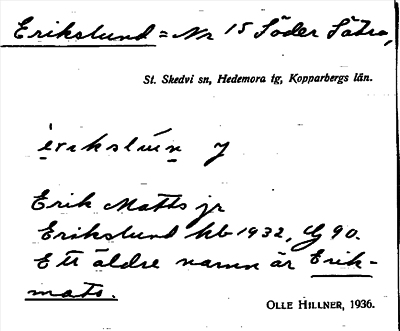 Erikslund = Nr 15 Söder Sätra,
St. Skedvi sn, Hedemora tg, Kopparbergs län.
èrikslún y
Erik Matts jr
Erikslund kb 1932, G 90.
Ett äldre namn är Erik-
mats.
OLLE HILLNER, 1936.